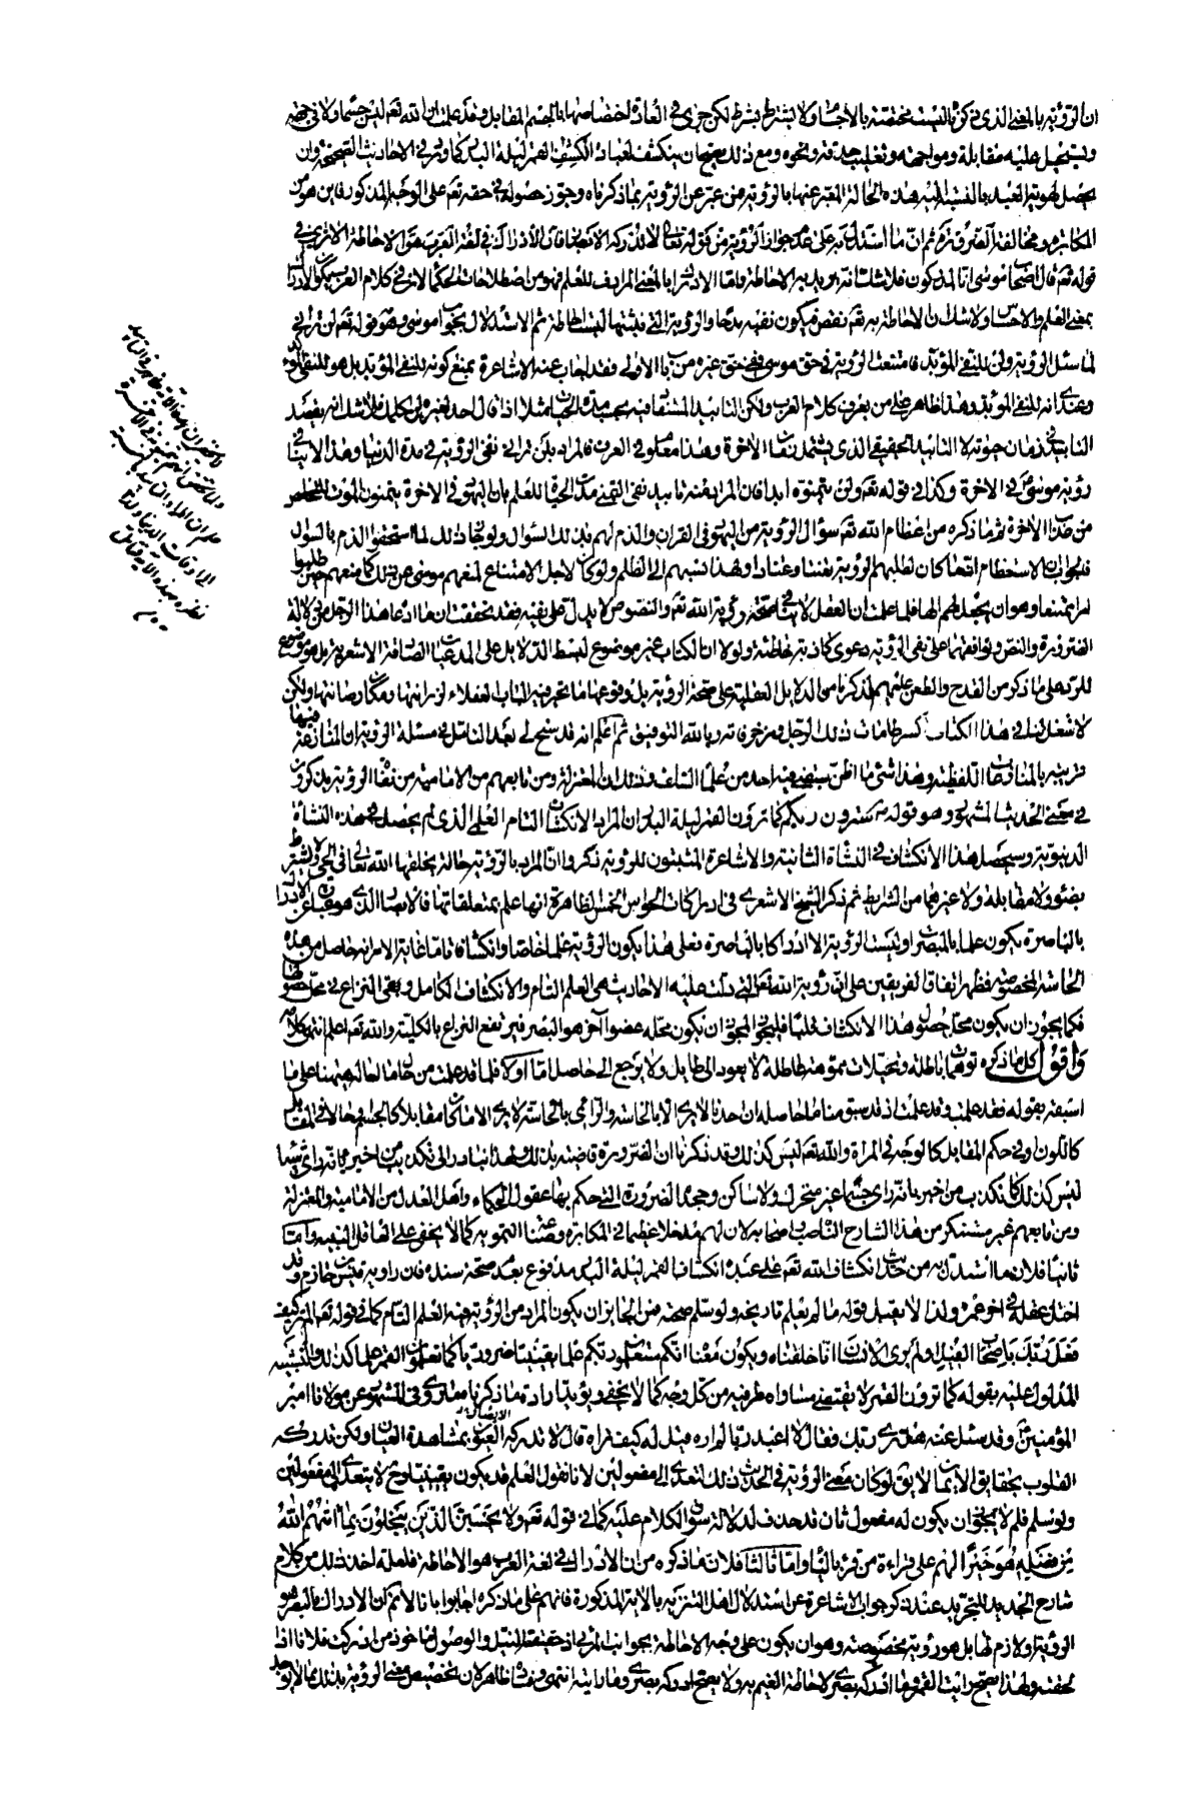 ان الرؤية بالمعنى الذي ذكرناه ليست مختصة بالاجسام ولا يشترط بشرط لكن جرى في العادة اختصاصها بالجسم المقابل وقد علمت ان الله تعم ليس جسما ولا في جهة
ويستحيل عليه مقابلة ومواجهة وتقليب حدقة ونحوه ومع ذلك يصح ان ينكشف لعباده انكشاف القمر ليلة البدر كما ورد في الاحاديث الصحيحة وان
يحصل لهوية العبد بالنسبة اليه هذه الحالة المعبر عنها بالرؤية فمن عبر عن الرؤية بما ذكرناه وجوز حصوله في حقه تعم على الوجه المذكور فاين هو من
المكابرة ومخالفة الضرورة ثم ان ما استدل به على عدم جواز الرؤية من قوله تعالى لا تدركه الابصار فان الادراك في لغة العرب هو الاحاطة الا ترى في
قوله تعم قال اصحاب موسى انا لمدركون فلا شك انه يريد به الاحاطة واما الادراك بالمعنى المرادف للعلم فهو من اصطلاحات الحكماء لا في كلام العرب يكون الادراك
بمعنى العلم والاحساس ولا شك ان الاحاطة به تعم نقص فيكون نفيه مدحا والرؤية التي نثبتها ليست احاطة ثم الاستدلال بجواب موسى وهو قوله تعم لن تراني
لما سئل الرؤية ولن للنفي المؤبد فامتنعت الرؤية في حق موسى ففي حق غيره من باب الاولى فقد اجاب عنه الاشاعرة بمنع كونه للنفي المؤبد بل هو للنفي المؤكد
وعندي انه للنفي المؤبد وهذا ظاهر على من يعرف كلام العرب ولكن التابيد المستفاد منه بحسب مدة الحيات مثلا اذا قال احد لغيره لن اكلمك فلا شك انه يقصد
التابيد في زمان حيوته لا التابيد الحقيقي الذي يشمل زمان الاخرة وهذا معلوم في العرف فالمراد بلن تراني نفي الرؤية في مدة الدنيا وهذا لا ينافي
رؤية موسى في الاخرة وكذا في قوله تعم ولن يتمنوه ابدا فان المراد منه تابيد نفي التمني مدة الحياة للعلم بان اليهود في الاخرة يتمنون الموت للتخلص
من عذاب الاخرة ثم ما ذكره من اعظام الله تعم سؤال الرؤية من اليهود في القران والذم لهم بذلك السؤال ولو جاز ذلك لما استحقوا الذم بالسؤال
فالجواب ان الاستعظام انما كان لطلبهم الرؤية تعنتا وعنادا ولهذا نسبهم الى الظلم ولو كان لاجل الامتناع لمنعهم موسى عن ذلك كما منعهم حين طلبوا
امرا ممتنعا وهو ان يجعل لهم الها فلما علمت ان العقل لا ينافي صحة رؤية الله تعم والنصوص لا يدل على نفيه فقد تحققت ان ما ادعاه هذا الرجل من دلالة
الضرورة والنص وتوافقهما على نفي الرؤية دعوى كاذبة خاطئة ولولا ان الكتاب غير موضوع لبسط الدلايل على المدعيات الصادقة الاشعرية بل موضوع
للرد على ما ذكر من القدح والطعن عليهم لذكرنا من الدلايل العقلية على صحة الرؤية بل وقوعها ما تحير فيه الباب العقلاء لرزانتها ومكان رصانتها ولكن
لا شغل لنا في هذا الكتاب الا كسر طامات ذلك الرجل ومزخرفاته وبالله التوفيق ثم اعلم انه قد سنح لي بعد التامل في مسئلة الرؤية ان المنازعة فيها
قريبة بالمنازعات اللفظية وهذا شئ ما اظن سبقني فيه احد من علماء السلف وذلك ان المعتزلة ومن تابعهم من الامامية من نفاة الرؤية يذكرون
في معنى الحديث المشهور وهو قوله ص سترون ربكم كما ترون القمر ليلة البدر ان المراد الانكشاف التام العلمي الذي لم يحصل في هذه النشاة
الدنيوية وسيحصل هذا الانكشاف في النشاة الثانية والاشاعرة المثبتون للرؤية ذكروا ان المراد بالرؤية حالة يخلقها الله تعالى في الحي ولا يشترط
بضوء ولا مقابلة ولا غيرهما من الشرايط ثم ذكر الشيخ الاشعري في ادراكات الحواس الخمس الظاهرة انها علم بمتعلقاتها فالابصار الذي هو عبارة عن الادراك
بالباصرة يكون علما بالمبصرات وليست الرؤية الا ادراكا بالباصرة فعلى هذا يكون الرؤية علما خاصا وانكشافا تاما غاية الامر انه حاصل من هذه
الحاسة المخصوصة فظهر اتفاق الفريقين على ان رؤية الله تعم التي دلت عليه الاحاديث هي العلم التام والانكشاف الكامل وبقي النزاع في محل حصولها
فكما يجوز ان يكون محل حصول هذا الانكشاف قلبا فليجوز المجوز ان يكون محله عضوا آخر هو البصر فيرتفع النزاع بالكلية والله تعم اعلم انتهى كلامه
واقول كل ما ذكره توهمات باطلة وتخيلات مموهة عاطلة لا يعود الى طايل ولا يرجع الى حاصل اما اولا فلما قد علمت من حال ما احاله هيهنا على ما
اسبقه بقوله فقد علمت وقد علمت اذ قد سبق منا ما حاصله ان احدنا لا يرى الا بالحاسة والرائي بالحاسة لا يرى الا ما كان مقابلا كالجسم او حالا في المقابل
كاللون او في حكم المقابل كالوجه في المراة والله تعم ليس كذلك وقد ذكرنا ان الضرورة قاضية بذلك ولهذا نبادر الى تكذيب من اخبر بانه رأى شيئا
ليس كذلك كما نكذب من اخبر بانه رأى جسما غير متحرك ولا ساكن وجحد الضرورة التي حكم بها عقول الحكماء واهل العدل من الامامية والمعتزلة
ومن تابعهم غير مستنكر من هذا الشارح الناصب واصحابه لان لهم مدخلا عظيما في المكابرة وعشنا التمويه كما لا يخفى على العاقل النبيه واما
ثانيا فلان ما استدل به من حديث انكشاف الله تعم على عبده انكشاف القمر ليلة البدر مدفوع بعدم صحة سنده فان راويه قيس بن حازم وقد
اختل عقله في آخر عمره ولذا لا يقبل قوله ما لم يعلم تاريخه ولو سلم صحته فمن الجايز ان يكون المراد من الرؤية فيه العلم التام كما في قوله تعم الم تر كيف
فعل ربك باصحاب الفيل اولم ير الانسان انا خلقناه ويكون معناه انكم ستعلمون ربكم علما يقينيا ضروريا كما تعلمون القمر علما كذلك والتشبيه
المدلول عليه بقوله كما ترون القمر لا يقتضي مساواة طرفيه من كل وجه كما لا يخفى ويؤيد ارادة ما ذكرنا ما روي في المشهور عن مولانا امير
المؤمنين ع وقد سئل عنه هل ترى ربك فقال لا اعبد ربا لم اره قيل له كيف تراه قال لا تدركه العيون بمشاهدة العيان ولكن تدركه
القلوب بحقايق الايمان لا يق لو كان معنى الرؤية في الحديث ذلك لتعدى الى مفعولين لانا نقول العلم قد يكون يقينيا وح لا يتعدى الى مفعولين
ولو سلم فلم لا يجوز ان يكون له مفعول ثان قد حذف لدلالة سوق الكلام عليه كما في قوله تعم ولا يحسبن الذين يبخلون بما آتيهم الله
من فضله هو خيرا لهم على قراءة من قرء بالياء واما ثالثا فلان ما ذكره من ان الادراك في لغة العرب هو الاحاطة فلعله اخذ ذلك من كلام
شارح الجديد للتجريد عند ذكر جواب الاشاعرة عن استدلال اهل التنزيه بالاية المذكورة فانهم على ما ذكره اجابوا بانا لا نم ان الادراك بالبصر هو
الرؤية ولازم لها بل هو رؤية مخصوصة وهو ان يكون على وجه الاحاطة بجوانب المرئي اذ حقيقته النيل والوصول ماخوذ من ادركت فلانا اذا
لحقته ولهذا يصح رايت القمر وما ادركه بصري لاحاطة الغيم به ولا يصح ادركه بصري وما رايته انتهى وفساده ظاهر لان تخصيص معنى الرؤية بذلك مما لا يوجد